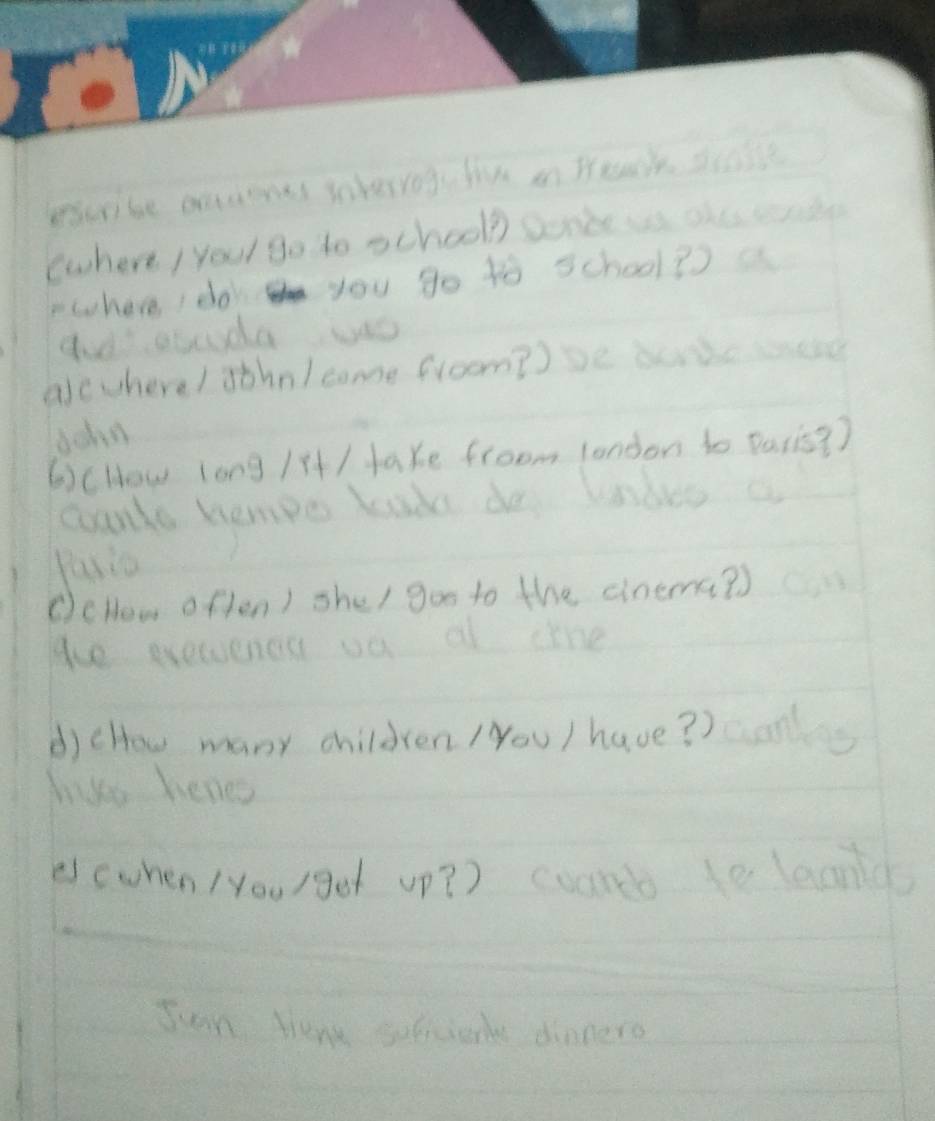 escribe oraciones interrogative en
(where / you / go to school?) Donde
- where do you go to school?) a
que escuela vas
a)(where / John / come froom?) De donde viene
John
b)(How long / it / take froom london to Paris?)
tiempo de londres a
Paris
c)(How often) she / goo to the cinema?) Con
que va al cine
d)(How many children / You / have?)
hijos tienes
e)(when / You / get up?) te
Juan dinnero